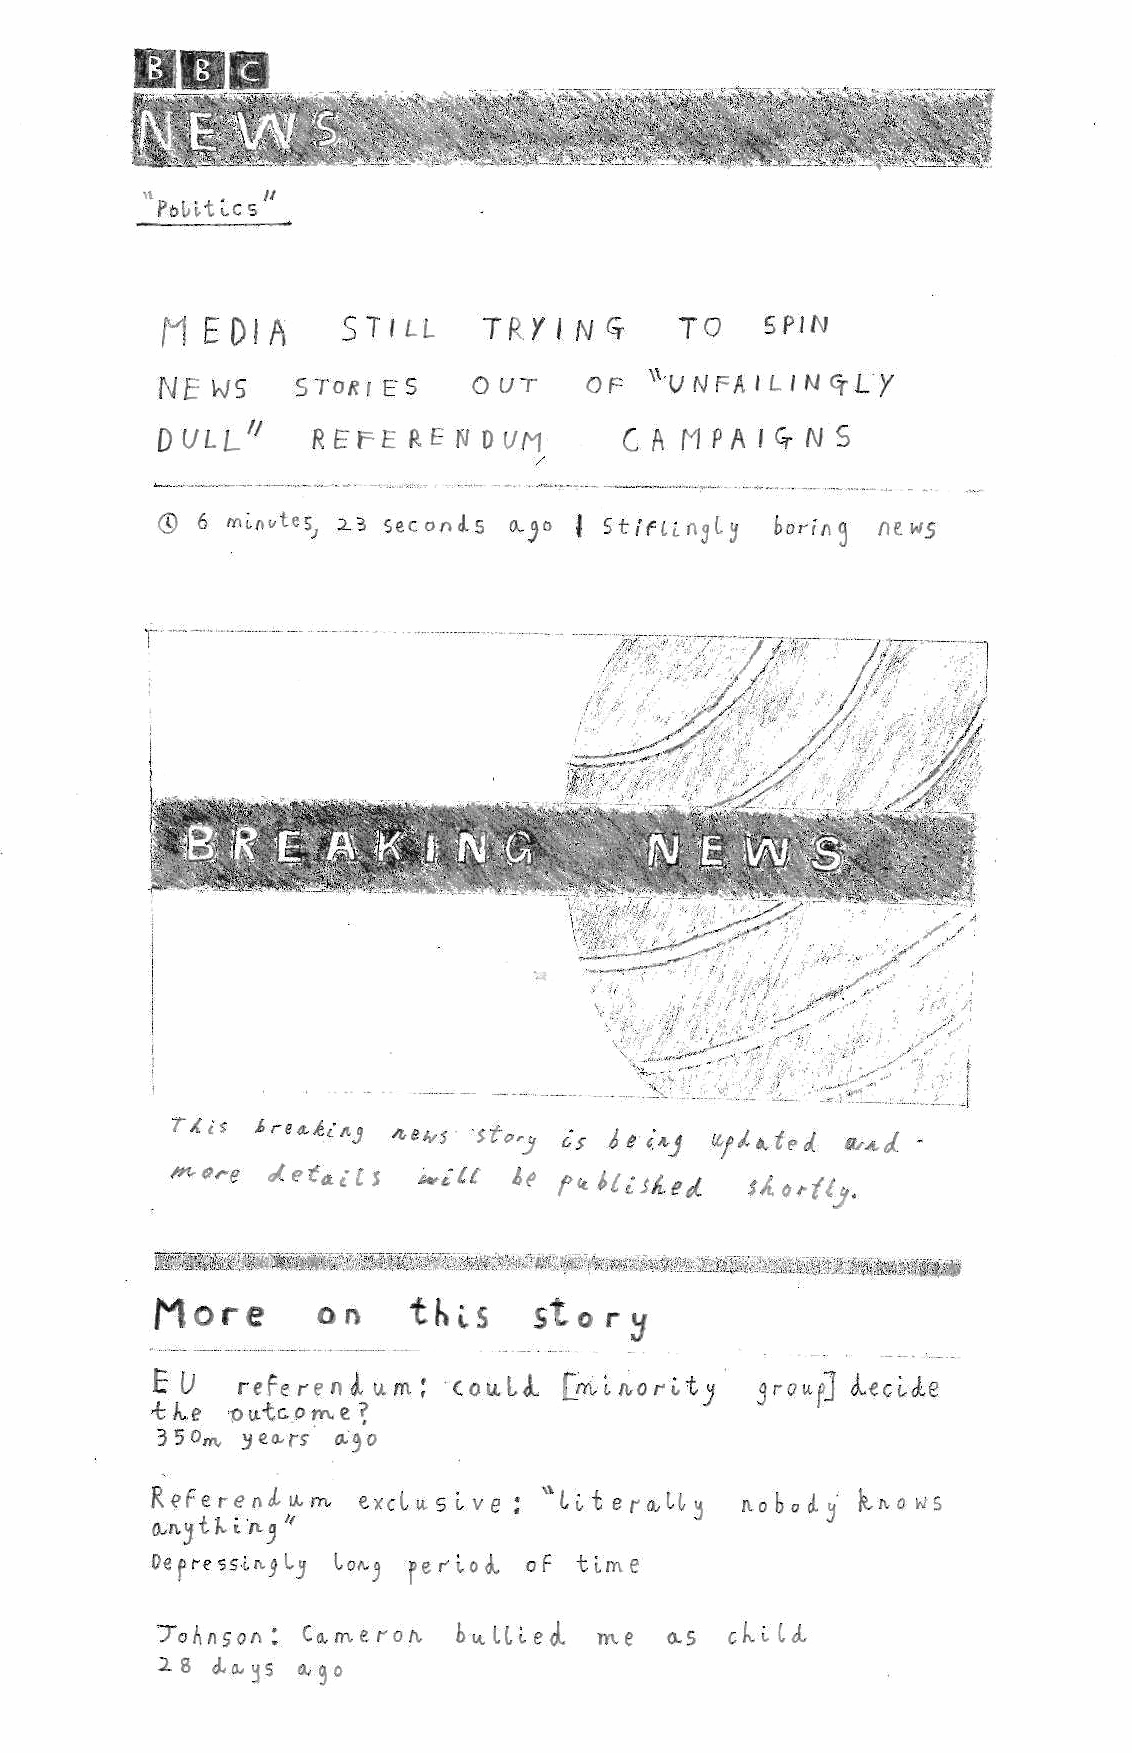 BBC
NEWS
"Politics"
MEDIA STILL TRYING TO SPIN
NEWS STORIES OUT OF "UNFAILINGLY
DULL" REFERENDUM CAMPAIGNS
6 minutes, 23 seconds ago | Stiflingly boring news
BREAKING NEWS
This breaking news story is being updated and -
more details will be published shortly.
More on this story
EU referendum: could [minority group] decide
the outcome?
350m years ago
Referendum exclusive: "literally nobody knows
anything"
Depressingly long period of time
Johnson: Cameron bullied me as child
28 days ago